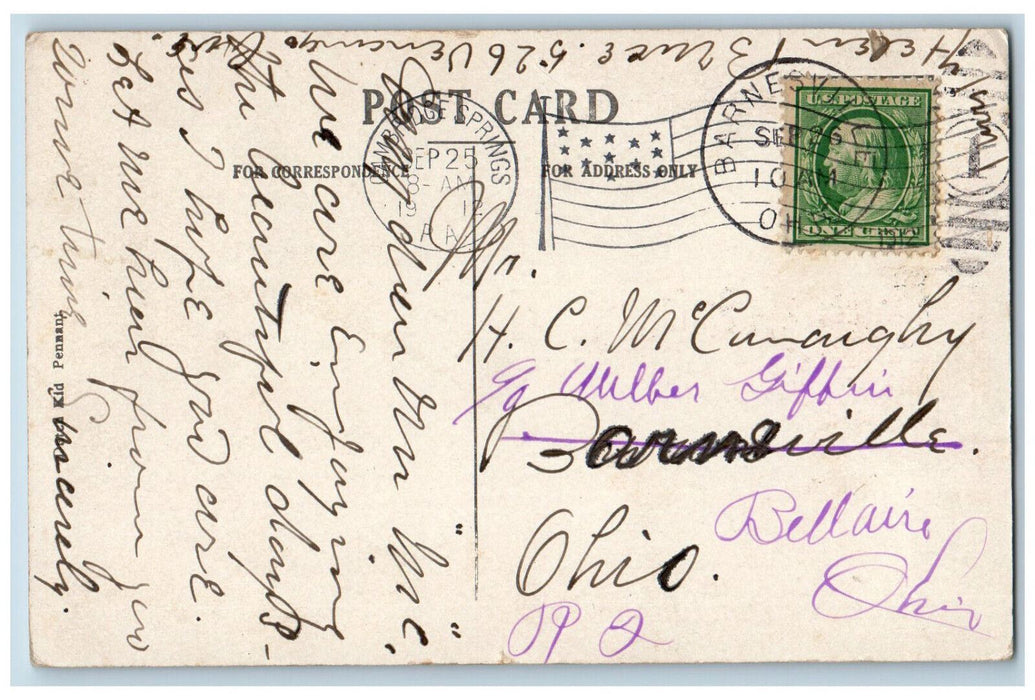 POST CARD
FOR CORRESPONDENCE
FOR ADDRESS ONLY
CAMBRIDGE SPRINGS
SEP 25
8-AM
1912
PA
BARNESVILLE
SEP 26
10 AM
1912
OHIO
U.S. POSTAGE
ONE CENT
My dear Mr "Mc,"
We are Enjoying
the beautiful days-
as I hope you are.
Let me hear from you
some time
Sincerely.
Helen
526
Mr.
H. C. McConaughy
Wilber Giffin
Barnesville.
Ohio.
Bellaire
Ohio
R
Kid Pennant